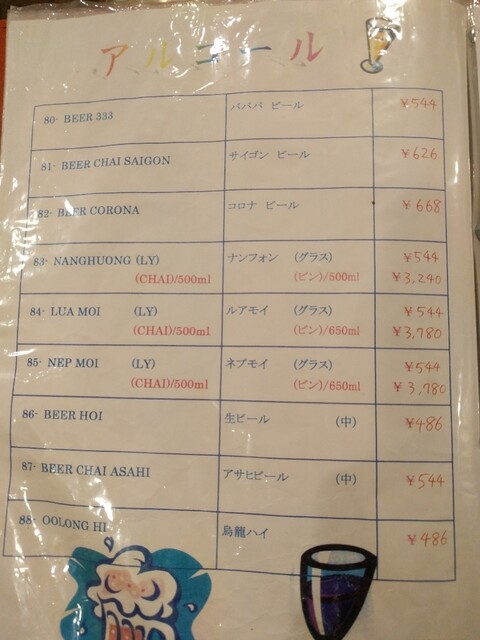 アルコール
80· BEER 333 バババ ビール ¥544
81· BEER CHAI SAIGON サイゴン ビール ¥626
82· BEER CORONA コロナ ビール ¥668
83· NANGHUONG (LY) ナンフォン (グラス) ¥544
(CHAI)/500ml (ビン)/500ml ¥3,240
84· LUA MOI (LY) ルアモイ (グラス) ¥544
(CHAI)/500ml (ビン)/650ml ¥3,780
85· NEP MOI (LY) ネプモイ (グラス) ¥544
(CHAI)/500ml (ビン)/650ml ¥3,780
86· BEER HOI 生ビール (中) ¥486
87· BEER CHAI ASAHI アサヒビール (中) ¥544
88· OOLONG HI 烏龍ハイ ¥486